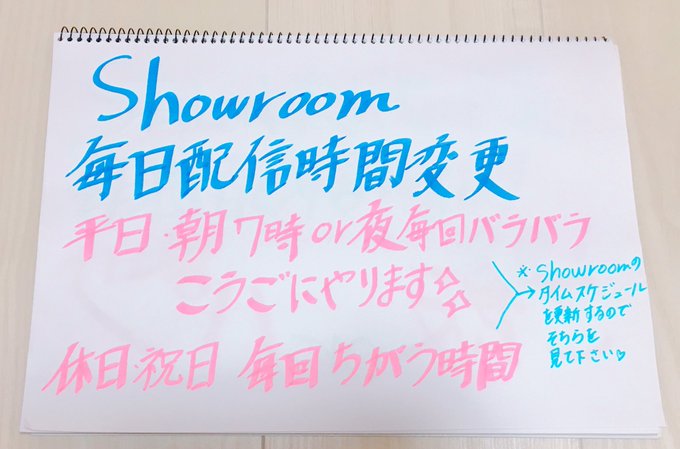 Showroom
毎日配信時間変更
平日・朝7時or夜毎回バラバラ
こうごにやります☆☆
休日・祝日 毎回ちがう時間
※・Showroomの
タイムスケジュール
を更新するので
そちらを
見て下さい♡